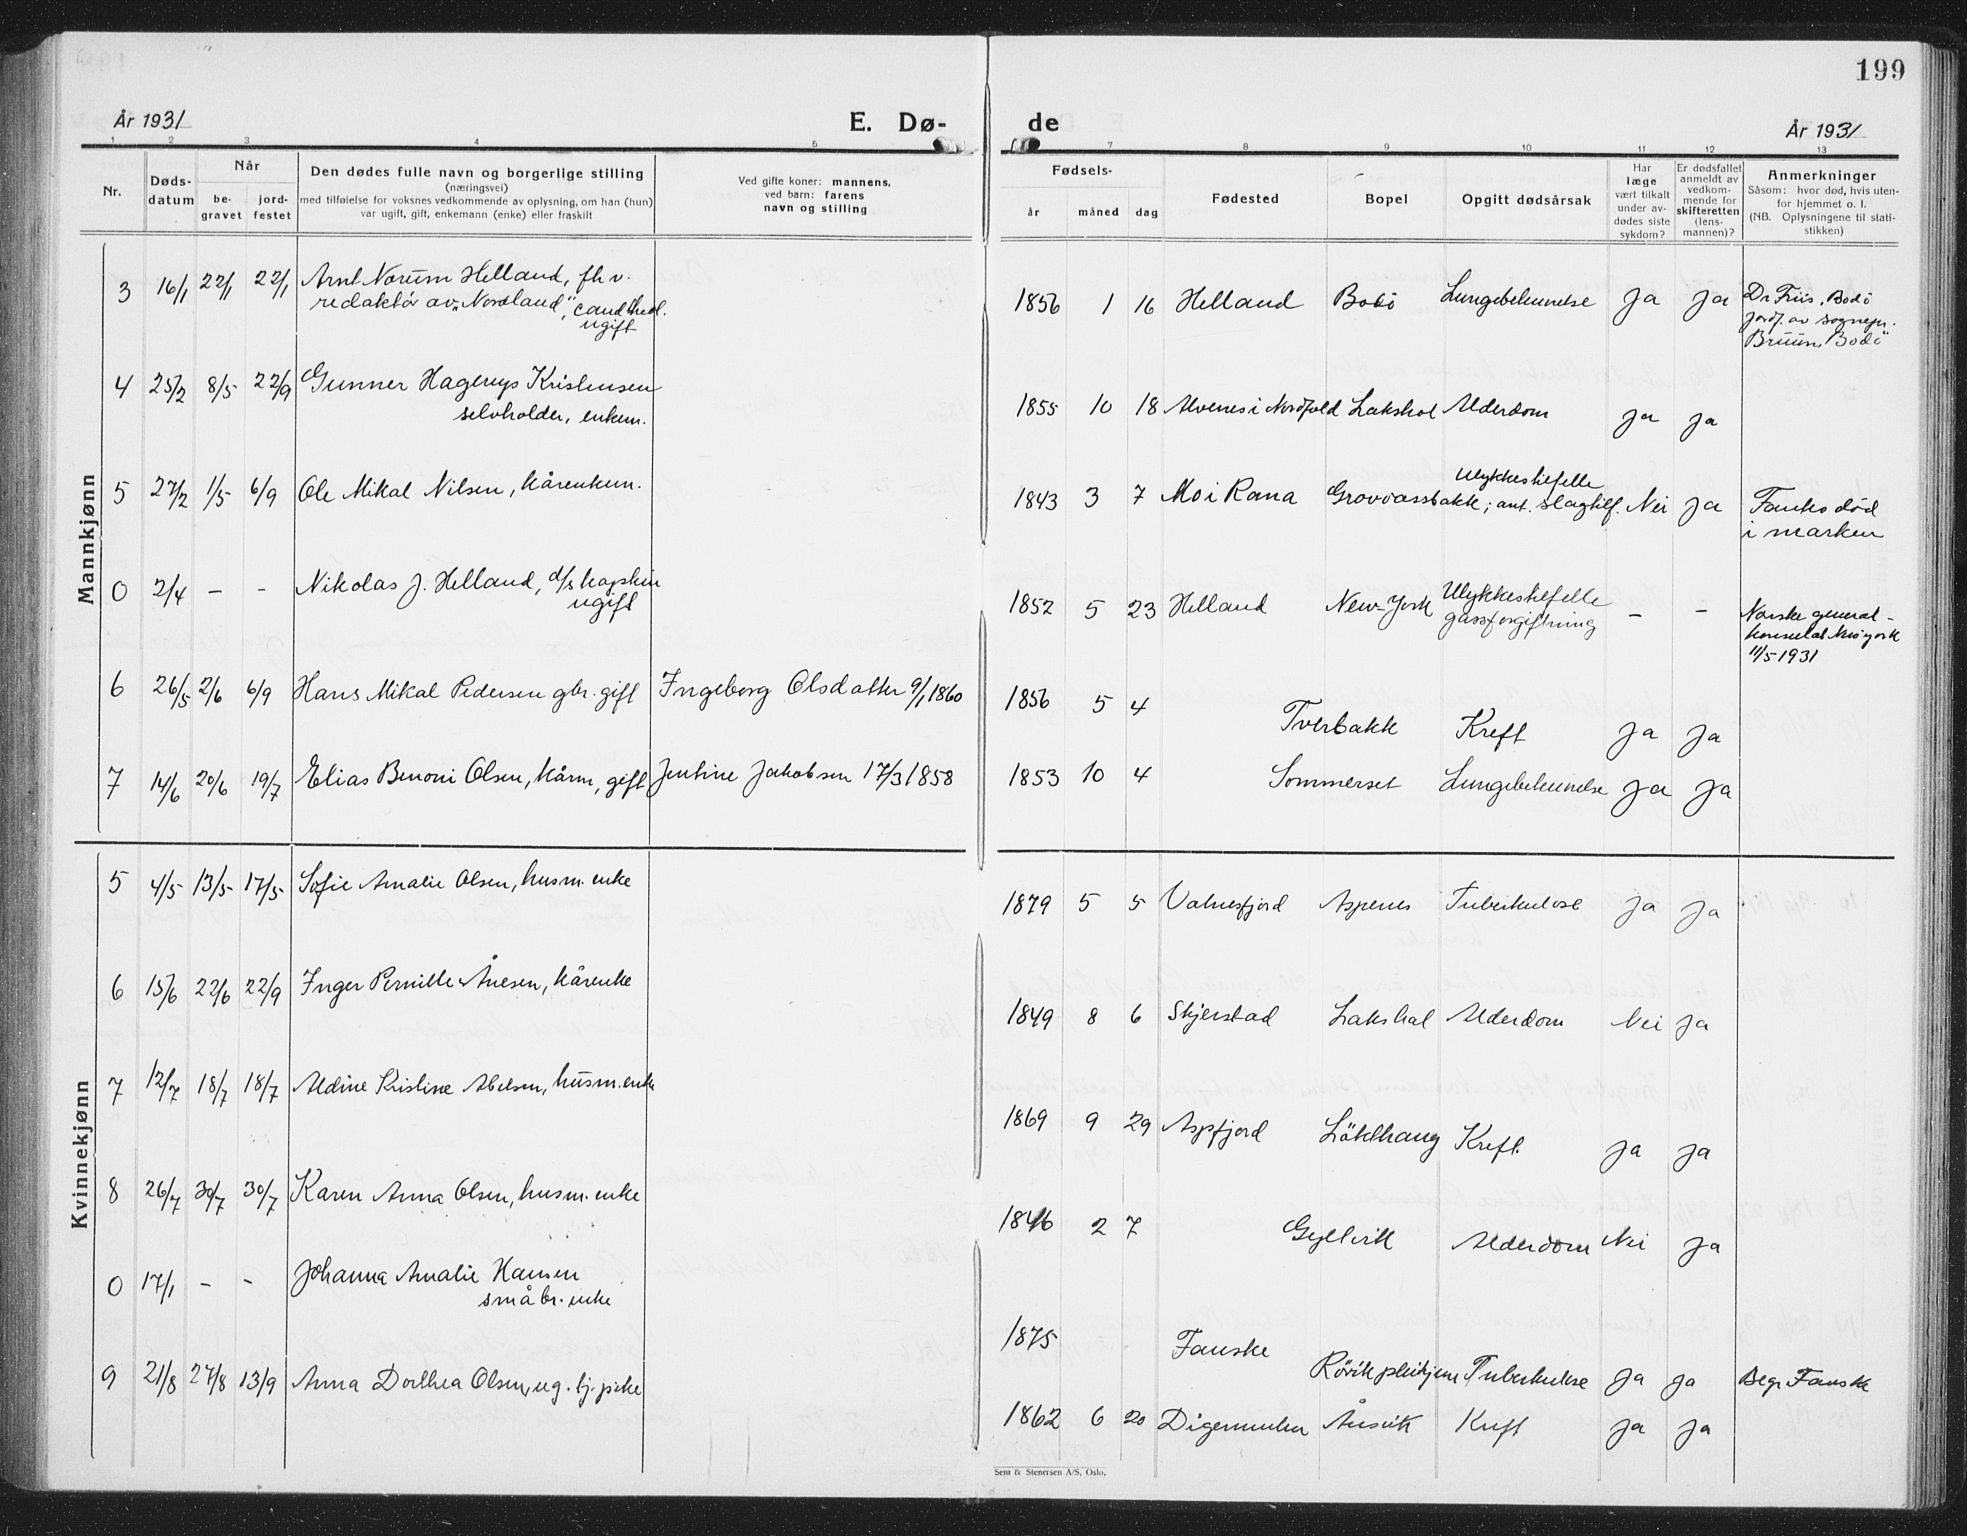 199
År 1931
E. Dø-
de
År 1931
1 2 3 4 5 7 8 9 10 11 12 13
Nr.
Døds-
datum
Når
be-
gravet
jord-
festet
Den dødes fulle navn og borgerlige stilling
(næringsvei)
med tilføielse for voksnes vedkommende av oplysning, om han (hun)
var ugift, gift, enkemann (enke) eller fraskilt
Ved gifte koner: mannens,
ved barn: farens
navn og stilling
Fødsels-
år måned dag
Fødested
Bopel
Opgitt dødsårsak
Har
læge
vært tilkalt
under av-
dødes siste
sykdom?
Er dødsfallet
anmeldt av
vedkom-
mende for
skifteretten
(lens-
mannen)?
Anmerkninger
Såsom: hvor død, hvis uten-
for hjemmet o. l.
(NB. Oplysningene til stati-
stikken)
Mannkjønn
3 16/1 22/1 22/1 Arnt Norum Helland, fh v.
redaktör av "Nordland", cand theol.
ugift
1856 1 16 Helland Bodö Lungebetennelse Ja Ja Dr Friis, Bodö
jordf. av sognepr.
Bruun, Bodö
4 25/2 8/5 22/9 Gunner Kristensen
selvholder, enkem.
1855 10 18 Alvenes i Nordfold Lakshol Alderdom Ja Ja
5 27/2 1/5 6/9 Ole Mikal Nilsen, kårenkem.
1843 3 7 Mo i Rana Grovaasbakk Ulykkestilfelle
; ant. slagtilf. Nei Ja Fantes död
i marken
0 2/4 - - Nikolas J. Helland,
ugift
1852 5 23 Helland New-York Ulykkestilfelle
gassforgiftning - - Norske general-
konsulat Newyork
11/5 1931
6 26/5 2/6 6/9 Hans Mikal Pedersen gbr. gift Ingeborg Olsdatter 9/1 1860
1856 5 4 Tverbakk Kreft Ja Ja
7 14/6 20/6 19/7 Elias Benoni Olsen, kårm, gift Jentine Jakobsen 17/3 1858
1853 10 4 Sommerset Lungebetennelse Ja Ja
Kvinnekjønn
5 4/5 13/5 17/5 Sofie Amalie Olsen, husm. enke
1879 5 5 Valnesfjord Aspenes Tuberkulose Ja Ja
6 15/6 22/6 22/9 Inger Pernille Ånesen, kårenke
1849 8 6 Skjerstad Lakshol Alderdom Nei Ja
7 12/7 18/7 18/7 Aldine Kristine Abelsen, husm. enke
1869 9 29 Aspfjord Löklhaug Kreft. Ja Ja
8 26/7 30/7 30/7 Karen Anna Olsen, husm. enke
1846 2 7 Gyltvik Alderdom Nei Ja
0 17/1 - - Johanna Amalie Hansen
småbr. enke
1875 Fauske Rövik pleiehjem Tuberkulose Ja Ja Begr Fauske
9 21/8 27/8 13/9 Anna Dorthea Olsen, ug. tj. pike
1862 6 20 Digermulen Ånsvik Kreft Ja Ja
Sem & Stenersen A/S, Oslo.